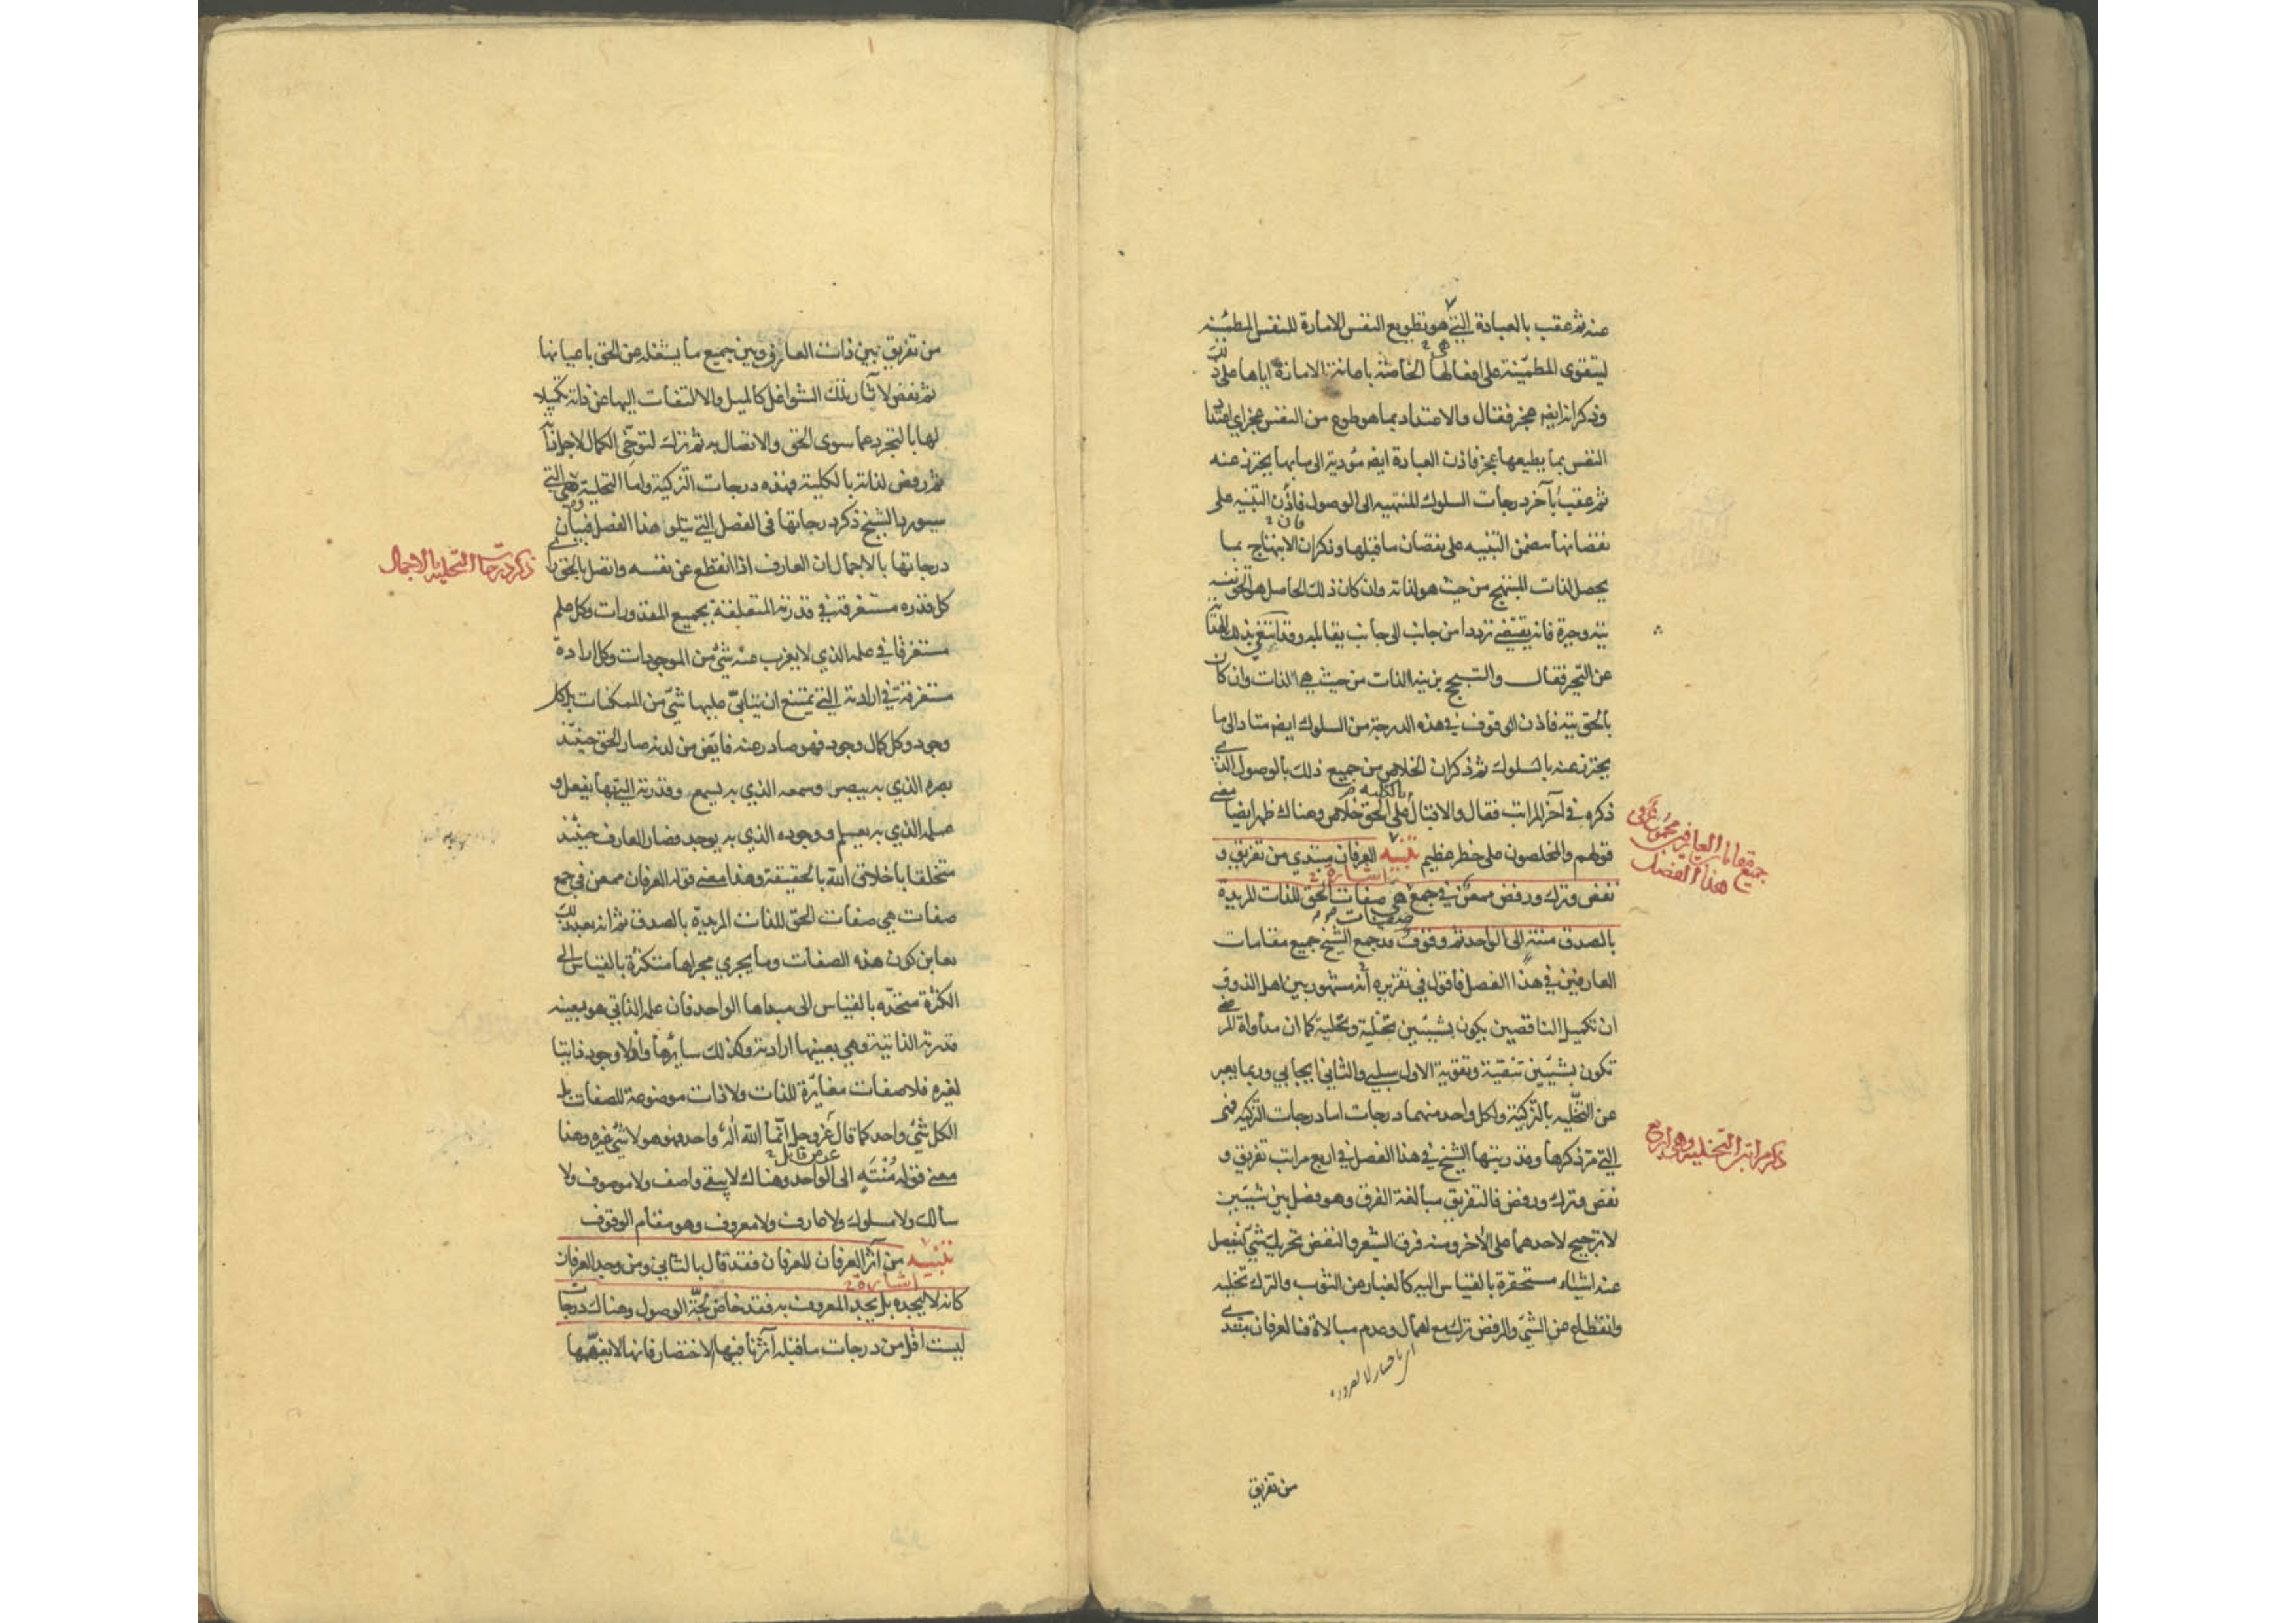 عنه ثم عقب بالعبادة التي هو تطويع النفس الامارة للنفس المطمئنة
هي
ليتقوى المطمئنة على افعالها الخاصة باعانة الامارة اياها على ذلك
وذكر انه ايضا عجز فقال والاعتداد بما هو طوع من النفس عجز اي اعتداد
النفس بما يطيعها عجز فاذن العبادة ايضا مؤدية الى ما بها يحترز عنه
ثم عقب بآخر درجات السلوك المنتهية الى الوصول فاذن التنبيه على
فان
نقصانها يتضمن التنبيه على نقصان ما قبلها وذكر ان الابتهاج بما
يحصل لذات المبتهج من حيث هو لذاته وان كان ذلك الحاصل هو الحق نفسه
تيه وحيرة فانه يقتضي ترددا من جانب الى جانب يقابله وقد ابتغي بذلك الهداية
عن التحير فقال والتبجح بزينة الذات من حيث هي الذات وان كان
بالحق تيه فاذن الوقوف في هذه الدرجة من السلوك ايضا متاد الى ما
يحترز عنه بالسلوك ثم ذكر ان الخلاص من جميع ذلك بالوصول الذي
بالكلية
ذكره في آخر المراتب فقال والاقبال على الحق خلاص وهناك ظهر ايضا معنى
قولهم والمخلصون على خطر عظيم تنبيه العرفان مبتدي من تفريق و
اشارة
جميع مقامات العارفين مجموعة في
هذا الفصل
نفض وترك ورفض ممعن في جمع هي صفات الحق للذات المريدة
صفات
بالصدق منته الى الواحد ثم وقوف قد جمع الشيخ جميع مقامات
العارفين في هذا الفصل فاقول في تقريره انه مشهور بين اهل الذوق
ان تكميل الناقصين يكون بشيئين تخلية وتحلية كما ان مداواة المرضى
تكون بشيئين تنقية وتقوية الاول سلبي والثاني ايجابي وربما يعبر
عن التخلية بالتزكية ولكل واحد منهما درجات اما درجات التزكية فهي
ذكر مراتب التخلية وهي اربع
التي مر ذكرها وقد رتبها الشيخ في هذا الفصل في اربع مراتب تفريق و
نفض وترك ورفض فالتفريق مبالغة الفرق وهو فصل بين شيئين
لا ترجيح لاحدهما على الآخر ومنه فرق الشعر والنفض تحريك شيء لينفصل
عنه اشياء مستحقرة بالقياس اليه كالغبار عن الثوب والترك تخلية
وانقطاع عن الشيء والرفض ترك مع اهمال وعدم مبالاة فالعرفان مبتدي
من تفريق
من تفريق بين ذات العارف وبين جميع ما يشغله عن الحق باعيانها
ثم نفض لآثار تلك الشواغل كالميل والالتفات اليها عن ذاته تكميلا
لها بالتجرد عما سوى الحق والاتصال به ثم ترك لتوخي الكمال لاجل ذاته
ثم رفض لذاته بالكلية فهذه درجات التزكية واما التحلية فهي التي
سيورد الشيخ ذكر درجاتها في الفصل الذي يتلو هذا الفصل فبيان
درجاتها بالاجمال ان العارف اذا انقطع عن نفسه واتصل بالحق راى
ذكر درجات التحلية بالاجمال
كل قدرة مستغرقة في قدرته المتعلقة بجميع المقدورات وكل علم
مستغرقا في علمه الذي لا يعزب عنه شيء من الموجودات وكل ارادة
مستغرقة في ارادته التي يمتنع ان يتابى عليها شيء من الممكنات بل كل
وجود وكل كمال وجود فهو صادر عنه فايض من لدنه صار الحق حينئذ
بصره الذي به يبصر وسمعه الذي به يسمع وقدرته التي بها يفعل و
علمه الذي به يعلم ووجوده الذي به يوجد فصار العارف حينئذ
متخلقا باخلاق الله بالحقيقة وهذا معنى قوله العرفان ممعن في جمع
صفات هي صفات الحق للذات المريدة بالصدق ثم انه بعد ذلك
يعاين كون هذه الصفات وما يجري مجراها متكثرة بالقياس الى
الكثرة متحدة بالقياس الى مبداها الواحد فان علمه الذاتي هو بعينه
قدرته الذاتية وهي بعينها ارادته وكذلك سايرها واذ لا وجود ذاتيا
لغيره فلا صفات مغايرة للذات ولا ذات موضوعة للصفات بل
الكل شيء واحد كما قال عز وجل انما الله اله واحد فهو هو لا شيء غيره وهذا
عز من قايل
معنى قوله منته الى الواحد وهناك لا يبقى واصف ولا موصوف ولا
سالك ولا مسلوك ولا عارف ولا معروف وهو مقام الوقوف
تنبيه من آثر العرفان للعرفان فقد قال بالثاني ومن وجد العرفان
اشارة
كانه لا يجده بل يجد المعروف به فقد خاض لجة الوصول وهناك درجات
ليست اقل من درجات ما قبله آثرنا فيها الاختصار فانها لا يفهمها